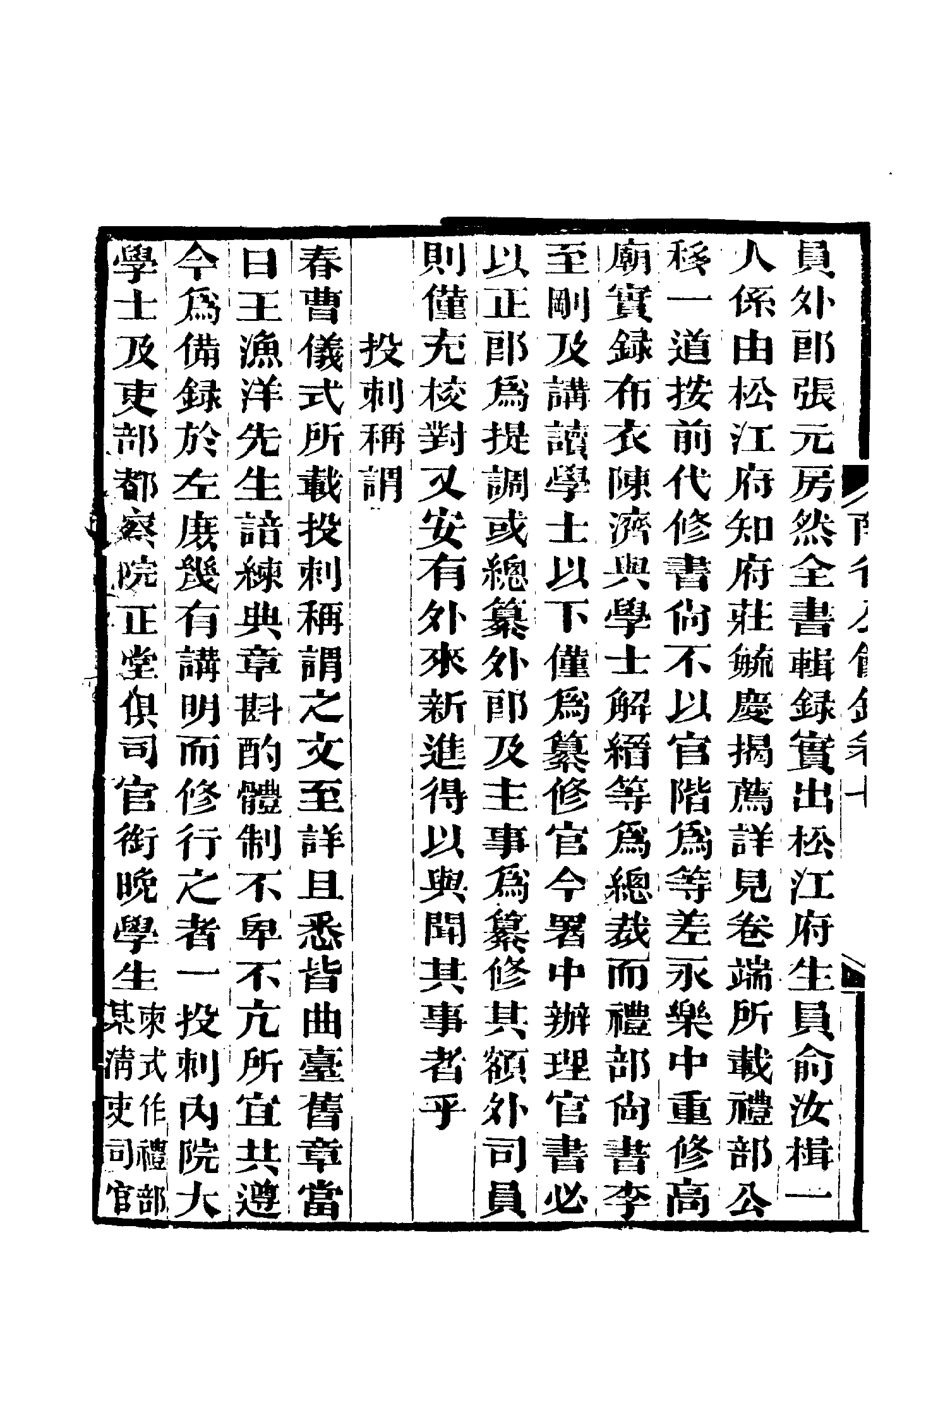 員外郎張元房然全書輯録實出松江府生員俞汝楫一
人係由松江府知府莊毓慶揭薦詳見卷端所載禮部公
移一道按前代修書尙不以官階爲等差永樂中重修高
廟實録布衣陳濟與學士解縉等爲總裁而禮部尙書李
至剛及講讀學士以下僅爲纂修官今署中辦理官書必
以正郎爲提調或總纂外郎及主事爲纂修其額外司員
則僅充校對又安有外來新進得以與聞其事者乎
投刺稱謂
春曹儀式所載投刺稱謂之文至詳且悉皆曲臺舊章當
日王漁洋先生諳練典章斟酌體制不卑不亢所宜共遵
今爲備録於左庶幾有講明而修行之者一投刺内院大
學士及吏部都察院正堂俱司官銜晚學生柬式作禮部某淸吏司官